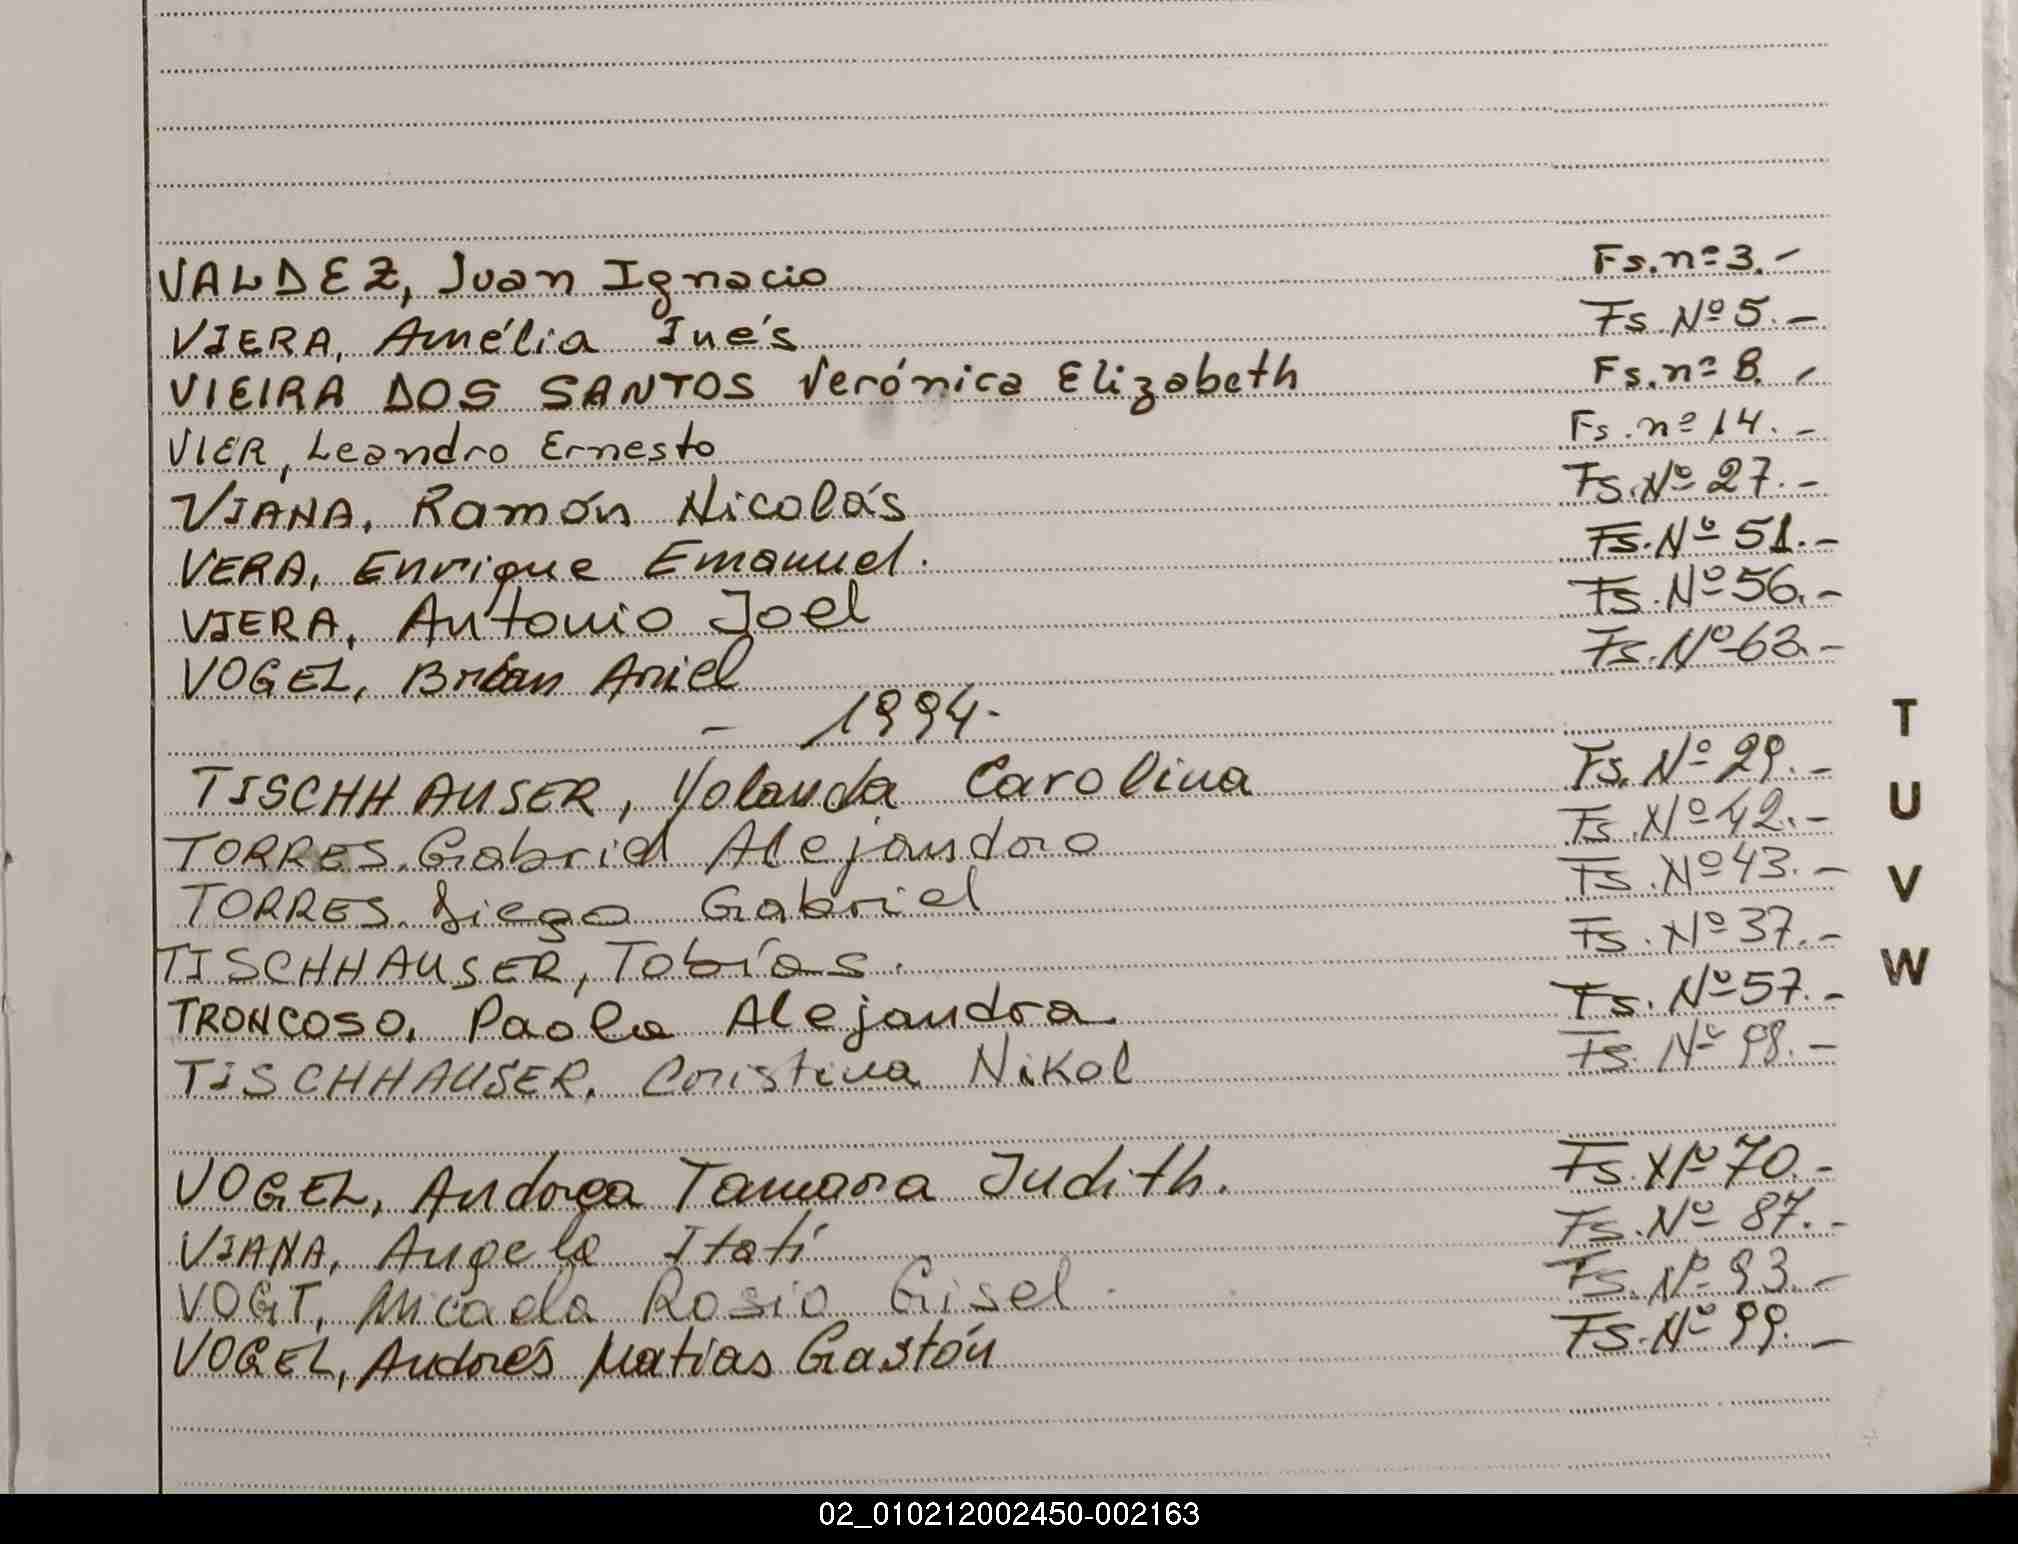 VALDEZ, Juan Ignacio Fs. nº 3.-
VIERA, Amélia Inés Fs. Nº 5.-
VIEIRA DOS SANTOS Verónica Elizabeth Fs. nº 8.-
VIER, Leandro Ernesto Fs. nº 14.-
VIANA, Ramón Nicolás Fs. Nº 27.-
VERA, Enrique Emanuel. Fs. Nº 51.-
VIERA, Antonio Joel Fs. Nº 56.-
VOGEL, Brian Ariel Fs. Nº 63.-
- 1994-
TISCHHAUSER, Yolanda Carolina Fs. Nº 29.-
TORRES, Gabriel Alejandro Fs. Nº 42.-
TORRES, Diego Gabriel Fs. Nº 43.-
TISCHHAUSER, Tobías. Fs. Nº 37.-
TRONCOSO, Paola Alejandra Fs. Nº 57.-
TISCHHAUSER, Cristina Nikol Fs. Nº 98.-
VOGEL, Andrea Tamara Judith. Fs. Nº 70.-
VIANA, Angela Itatí Fs. Nº 87.-
VOGT, Micaela Rosio Gisel Fs. Nº 93.-
VOGEL, Andrés Matias Gastón Fs. Nº 99.-
T
U
V
W
02_010212002450-002163